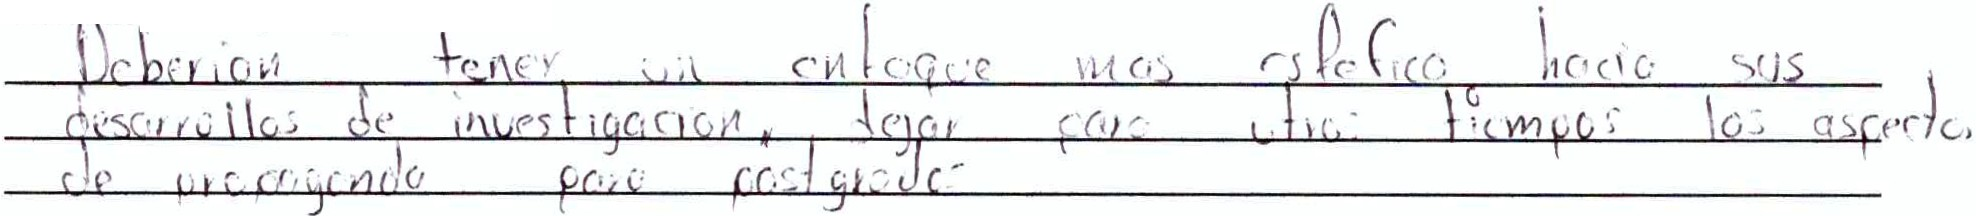 Deberian tener un enfoque mas espefico hacia sus
desarrollos de investigacion, dejar para otros tiempos los aspectos
de propaganda para postgrado